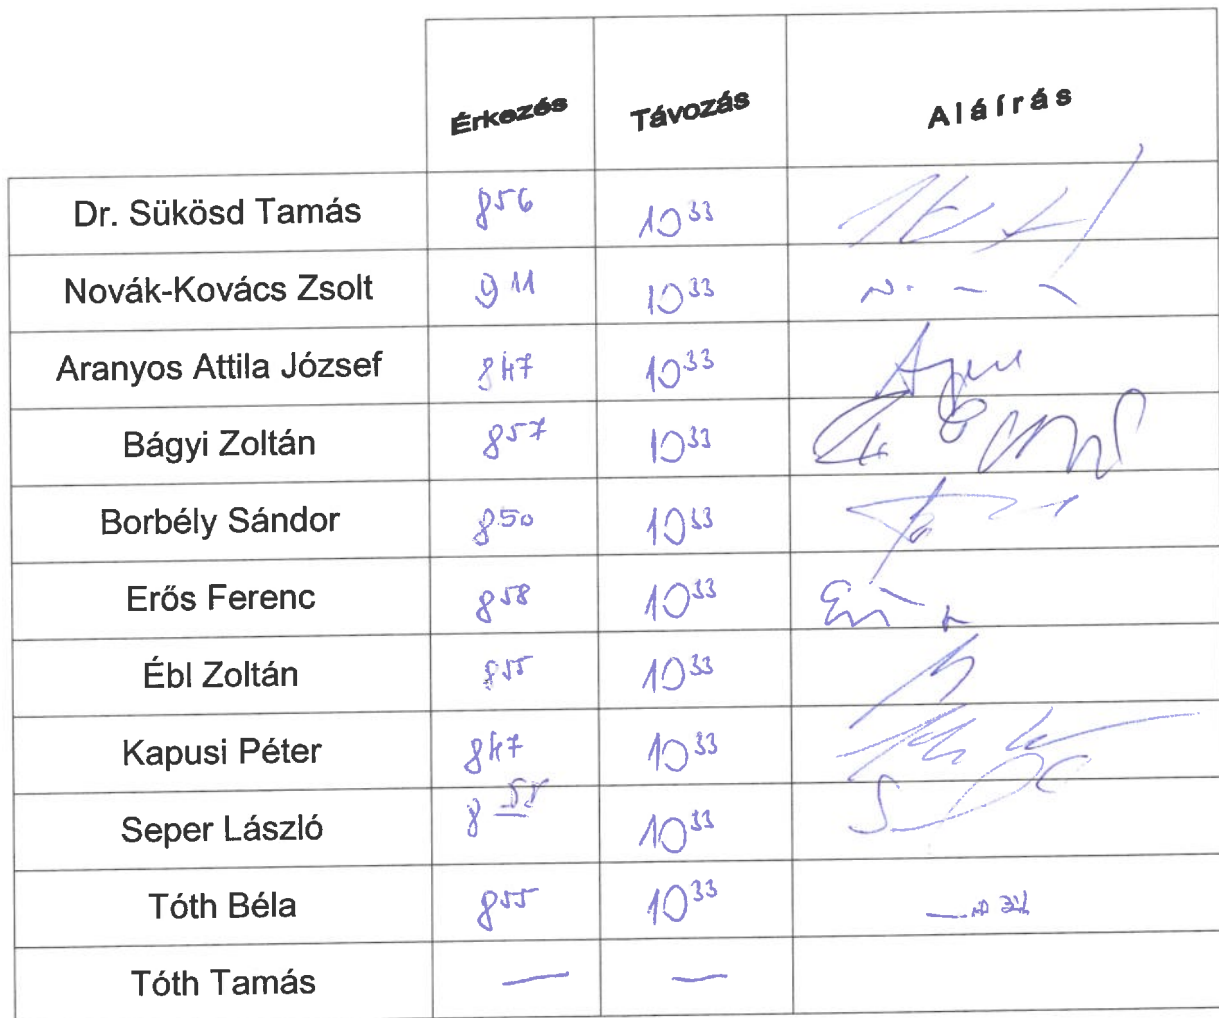 Érkezés Távozás Aláírás
Dr. Sükösd Tamás 8 56 10 33
Novák-Kovács Zsolt 9 11 10 33
Aranyos Attila József 8 47 10 33
Bágyi Zoltán 8 57 10 33
Borbély Sándor 8 50 10 33
Erős Ferenc 8 58 10 33
Ébl Zoltán 8 55 10 33
Kapusi Péter 8 47 10 33
Seper László 8 55 10 33
Tóth Béla 8 55 10 33
Tóth Tamás — —